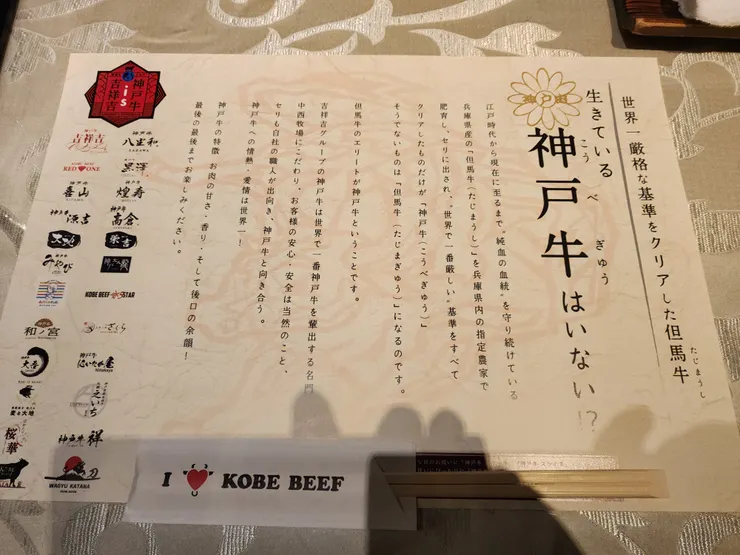 世界一厳格な基準をクリアした但馬牛
たじまうし
生きている
神戸牛はいない!?
こうべぎゅう
江戸時代から現在に至るまで"純血の血統"を守り続けている
兵庫県産の「但馬牛(たじまうし)」を兵庫県内の指定農家で
肥育し、セリに出され、"世界で一番厳しい"基準をすべて
クリアしたものだけが「神戸牛(こうべぎゅう)」
そうでないものは「但馬牛(たじまぎゅう)」になるのです。
但馬牛のエリートが神戸牛ということです。
吉祥吉グループの神戸牛は世界で一番神戸牛を輩出する名門
中西牧場にこだわり、お客様の安心・安全は当然のこと、
セリも自社の職人が出向き、神戸牛と向き合う。
神戸牛への情熱・愛情は世界一!
神戸牛の特徴 お肉の甘さ・香り・そして後口の余韻!
最後の最後までお楽しみください。
神戸牛
is
吉祥吉
吉祥吉
八坐和
RED ONE
黒澤
喜山
煌寿
源吉
高倉
栄吉
みやび
KOBE BEEF STAR
和ノ宮
さくら
大吉
にいたか亀
えいち
愛と大地
桜華
神戸牛 祥
WAGYU KATANA
I KOBE BEEF